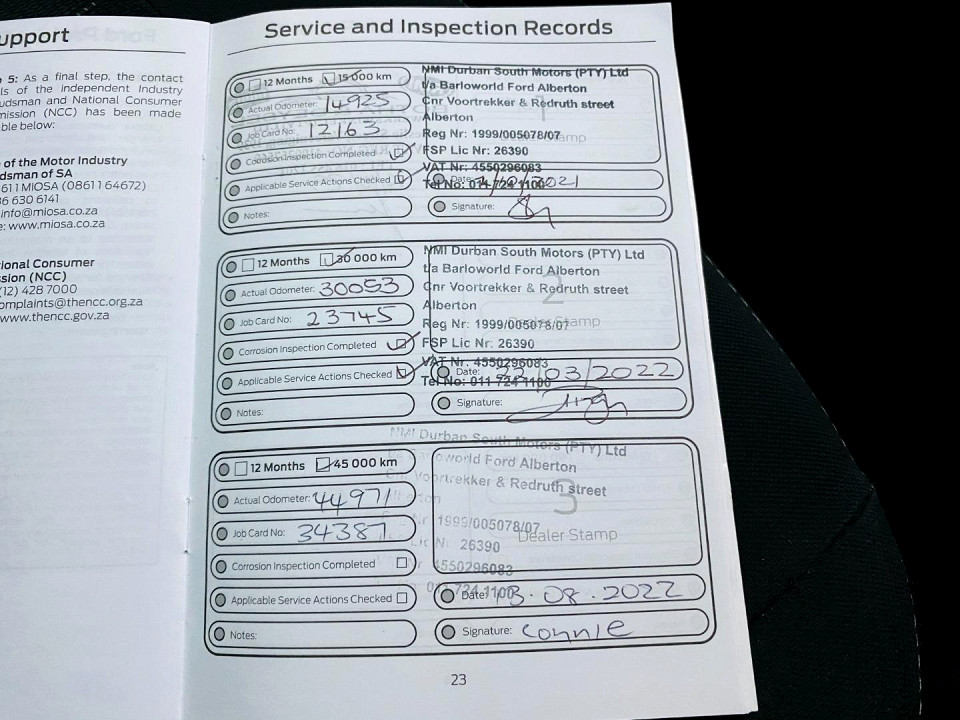 upport
5: As a final step, the contact
ls of the Independent Industry
udsman and National Consumer
mission (NCC) has been made
ble below:
of the Motor Industry
dsman of SA
611 MIOSA (08611 64672)
86 630 6141
info@miosa.co.za
e: www.miosa.co.za
ional Consumer
ssion (NCC)
(12) 428 7000
omplaints@thencc.org.za
www.thencc.gov.za
Service and Inspection Records
12 Months 15 000 km
Actual Odometer: 14925
Job Card No: 12163
Corrosion Inspection Completed
Applicable Service Actions Checked
Notes:
NMI Durban South Motors (PTY) Ltd
t/a Barloworld Ford Alberton
Cnr Voortrekker & Redruth street
Alberton
Reg Nr: 1999/005078/07
FSP Lic Nr: 26390
VAT Nr: 4550296083
Tel No: 011 724 1100
1
Stamp
Date: 2021
Signature:
12 Months 30 000 km
Actual Odometer: 30053
Job Card No: 23745
Corrosion Inspection Completed
Applicable Service Actions Checked
Notes:
NMI Durban South Motors (PTY) Ltd
t/a Barloworld Ford Alberton
Cnr Voortrekker & Redruth street
Alberton
Reg Nr: 1999/005078/07
FSP Lic Nr: 26390
VAT Nr. 4550296083
Tel No: 011 724 1100
2
Dealer Stamp
Date: 22/03/2022
Signature:
12 Months 45 000 km
Actual Odometer: 44971
Job Card No: 34387
Corrosion Inspection Completed
Applicable Service Actions Checked
Notes:
NMI Durban South Motors (PTY) Ltd
Barloworld Ford Alberton
Cnr Voortrekker & Redruth street
Alberton
1999/005078/07
Lic N 26390
4550296083
011 724 1100
3
Dealer Stamp
Date: 13.08.2022
Signature: Connie
23